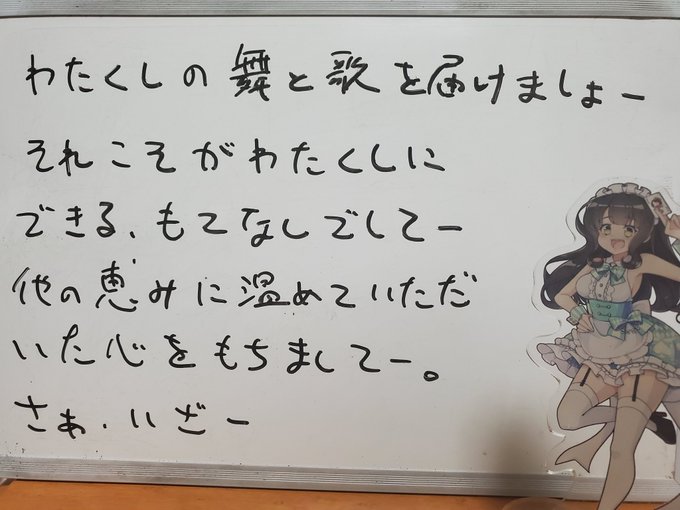 わたくしの舞と歌を届けましょー
それこそがわたくしに
できる、もてなしでしてー
他の恵みに温めていただ
いた心をもちましてー。
さぁ、いざー